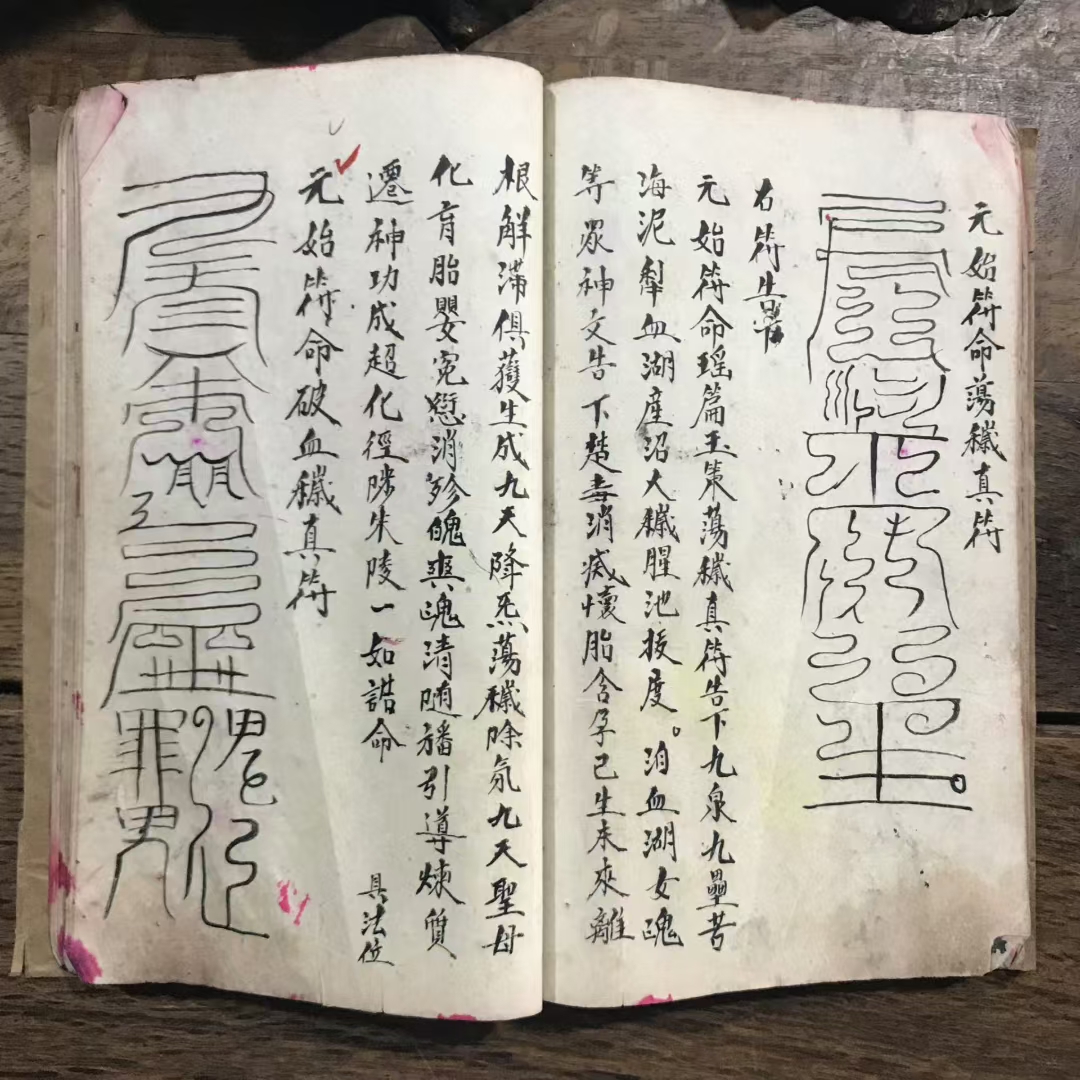 元始符命蕩穢真符
右符告
元始符命瑶篇玉策蕩穢真符告下九泉九壘苦
海泥犁血湖産沼大穢腥池拔度。洎血湖女魂
等眾神文告下楚毒消滅懷胎含孕已生未來離
根解滯俱獲生成九天降炁蕩穢除氛九天聖母
化育胎嬰寃愆消殄魄爽魂清随旛引導煉質
遷神功成超化徑陟朱陵一如誥命
具法位
元始符命破血穢真符